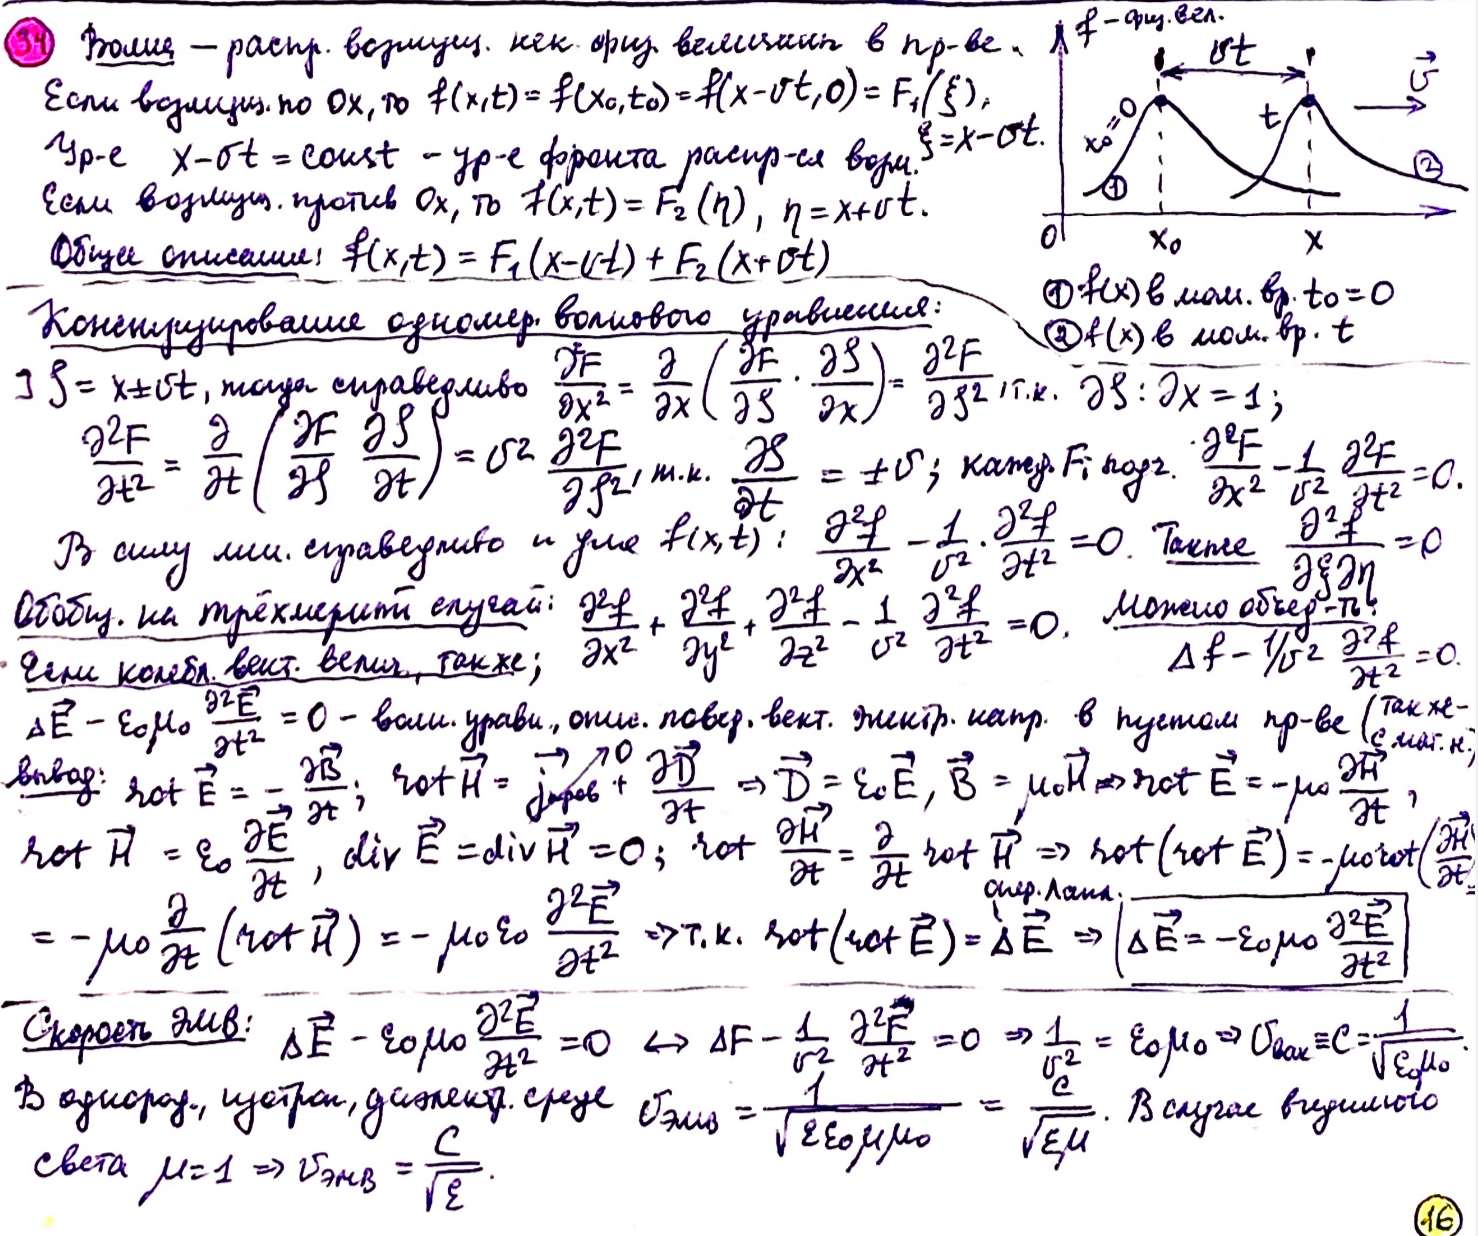 34 Волна — распр. возмущ. нек. физ. величины в пр-ве.
Если возмущ. по Ox, то f(x,t) = f(x₀,t₀) = f(x-υt,0) = F₁(ξ),
ξ = x-υt.
Ур-е x-υt = const - ур-е фронта распр-ся возм.
Если возмущ. против Ox, то f(x,t) = F₂(η), η = x+υt.
Общее описание: f(x,t) = F₁(x-υt) + F₂(x+υt)
f - физ. вел.
υt
υ⃗
x₀=0
t
① ②
0 x₀ x
① f(x) в мом. вр. t₀ = 0
② f(x) в мом. вр. t
Конструирование одномер. волнового уравнения:
] ζ = x±υt, тогда справедливо ∂²F/∂x² = ∂/∂x (∂F/∂ζ · ∂ζ/∂x) = ∂²F/∂ζ², т.к. ∂ζ : ∂x = 1;
∂²F/∂t² = ∂/∂t (∂F/∂ζ ∂ζ/∂t) = υ² ∂²F/∂ζ², т.к. ∂ζ/∂t = ±υ; кажд. Fᵢ подч. ∂²F/∂x² - 1/υ² ∂²F/∂t² = 0.
В силу лин. справедливо и для f(x,t): ∂²f/∂x² - 1/υ² · ∂²f/∂t² = 0. Также ∂²f/∂ξ∂η = 0
Обобщ. на трёхмерный случай: ∂²f/∂x² + ∂²f/∂y² + ∂²f/∂z² - 1/υ² ∂²f/∂t² = 0. Можно объед-ть:
Δf - 1/υ² ∂²f/∂t² = 0.
Если колебл. вект. велич., также;
ΔE⃗ - ε₀μ₀ ∂²E⃗/∂t² = 0 - волн. уравн., опис. повед. вект. электр. напр. в пустом пр-ве (также - с маг. н.)
вывод: rot E⃗ = - ∂B⃗/∂t; rot H⃗ = j⃗ пров →0 + ∂D⃗/∂t ⇒ D⃗ = ε₀E⃗, B⃗ = μ₀H⃗ ⇒ rot E⃗ = -μ₀ ∂H⃗/∂t,
rot H⃗ = ε₀ ∂E⃗/∂t, div E⃗ = div H⃗ = 0; rot ∂H⃗/∂t = ∂/∂t rot H⃗ ⇒ rot(rot E⃗) = -μ₀ rot(∂H⃗/∂t) =
опер. Лапл.
= -μ₀ ∂/∂t (rot H⃗) = -μ₀ε₀ ∂²E⃗/∂t² ⇒ т.к. rot(rot E⃗) = ΔE⃗ ⇒ ΔE⃗ = -ε₀μ₀ ∂²E⃗/∂t²
Скорость ЭМВ: ΔE⃗ - ε₀μ₀ ∂²E⃗/∂t² = 0 ↔ ΔF - 1/υ² ∂²F/∂t² = 0 ⇒ 1/υ² = ε₀μ₀ ⇒ υвак ≡ c = 1/√ε₀μ₀.
В однород., изотроп., диэлектр. среде υэмв = 1/√εε₀μμ₀ = c/√εμ. В случае видимого
света μ = 1 ⇒ υэмв = c/√ε.
16